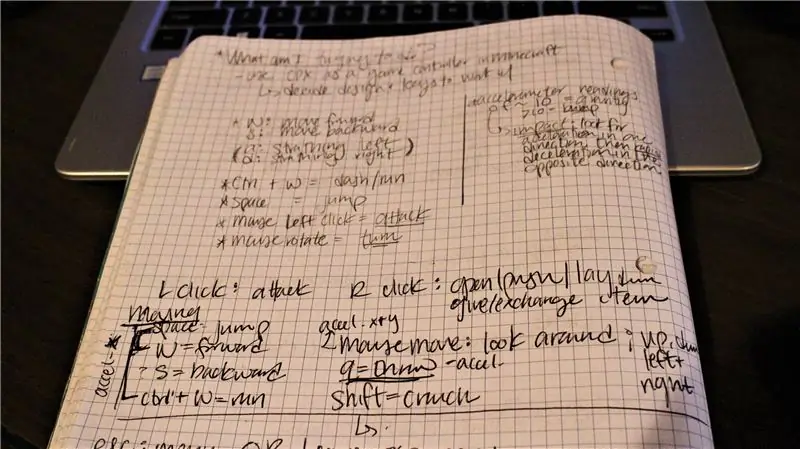 * What am I trying to do?
- use CPX as a game controller in minecraft
↳ decide design + keys to work w/
* W: move forward
S: move backward
(a: strafing left
d: strafing right)
* Ctrl + W = dash/run
* Space = jump
* mouse left click = attack
* mouse rotate = turn
* accelerometer readings
if ~ 10 = gravity
>10 = bump
↳ impact: look for
acceleration in one
direction, then
deceleration in the
opposite direction
L click: attack
R click: open/push/lay
give/exchange item
Moving
accel.
space: jump
W = forward
? S = backward
ctrl + W = run
accel. x + y
mouse move: look around; up,
left +
right
q = throw - accel.
Shift = crouch
↳
OR